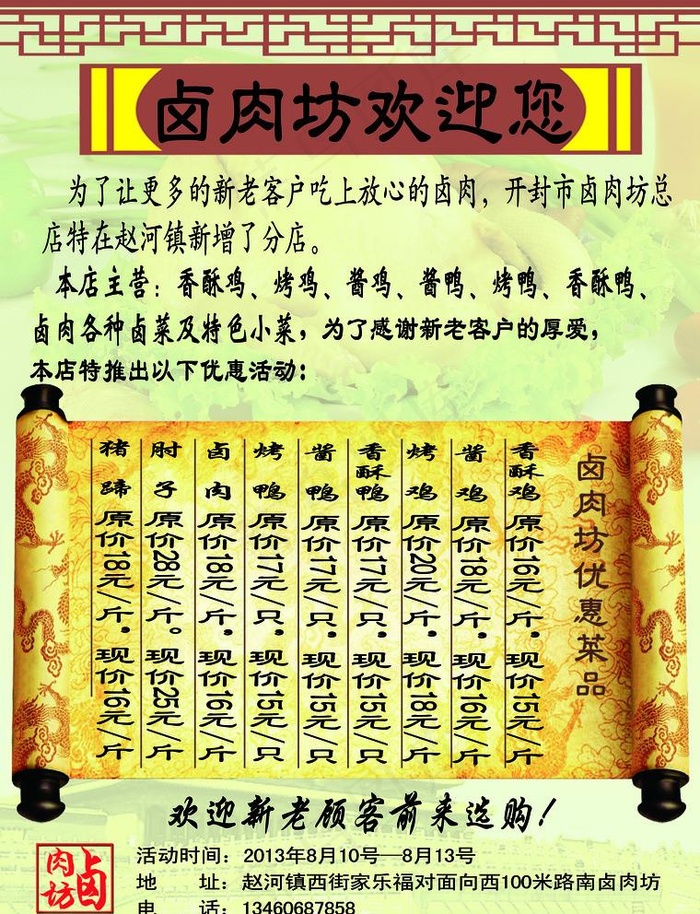 卤肉坊欢迎您
为了让更多的新老客户吃上放心的卤肉，开封市卤肉坊总
店特在赵河镇新增了分店。
本店主营：香酥鸡、烤鸡、酱鸡、酱鸭、烤鸭、香酥鸭、
卤肉各种卤菜及特色小菜，为了感谢新老客户的厚爱，
本店特推出以下优惠活动：
卤肉坊优惠菜品
香酥鸡 原价16元/斤。现价15元/斤
酱鸡 原价18元/斤。现价16元/斤
烤鸡 原价20元/斤。现价18元/斤
香酥鸭 原价17元/只。现价15元/只
酱鸭 原价17元/只。现价15元/只
烤鸭 原价17元/只。现价15元/只
卤肉 原价18元/斤。现价16元/斤
肘子 原价28元/斤。现价25元/斤
猪蹄 原价18元/斤。现价16元/斤
欢迎新老顾客前来选购！
卤肉坊
活动时间：2013年8月10号—8月13号
地 址：赵河镇西街家乐福对面向西100米路南卤肉坊
电 话：13460687858